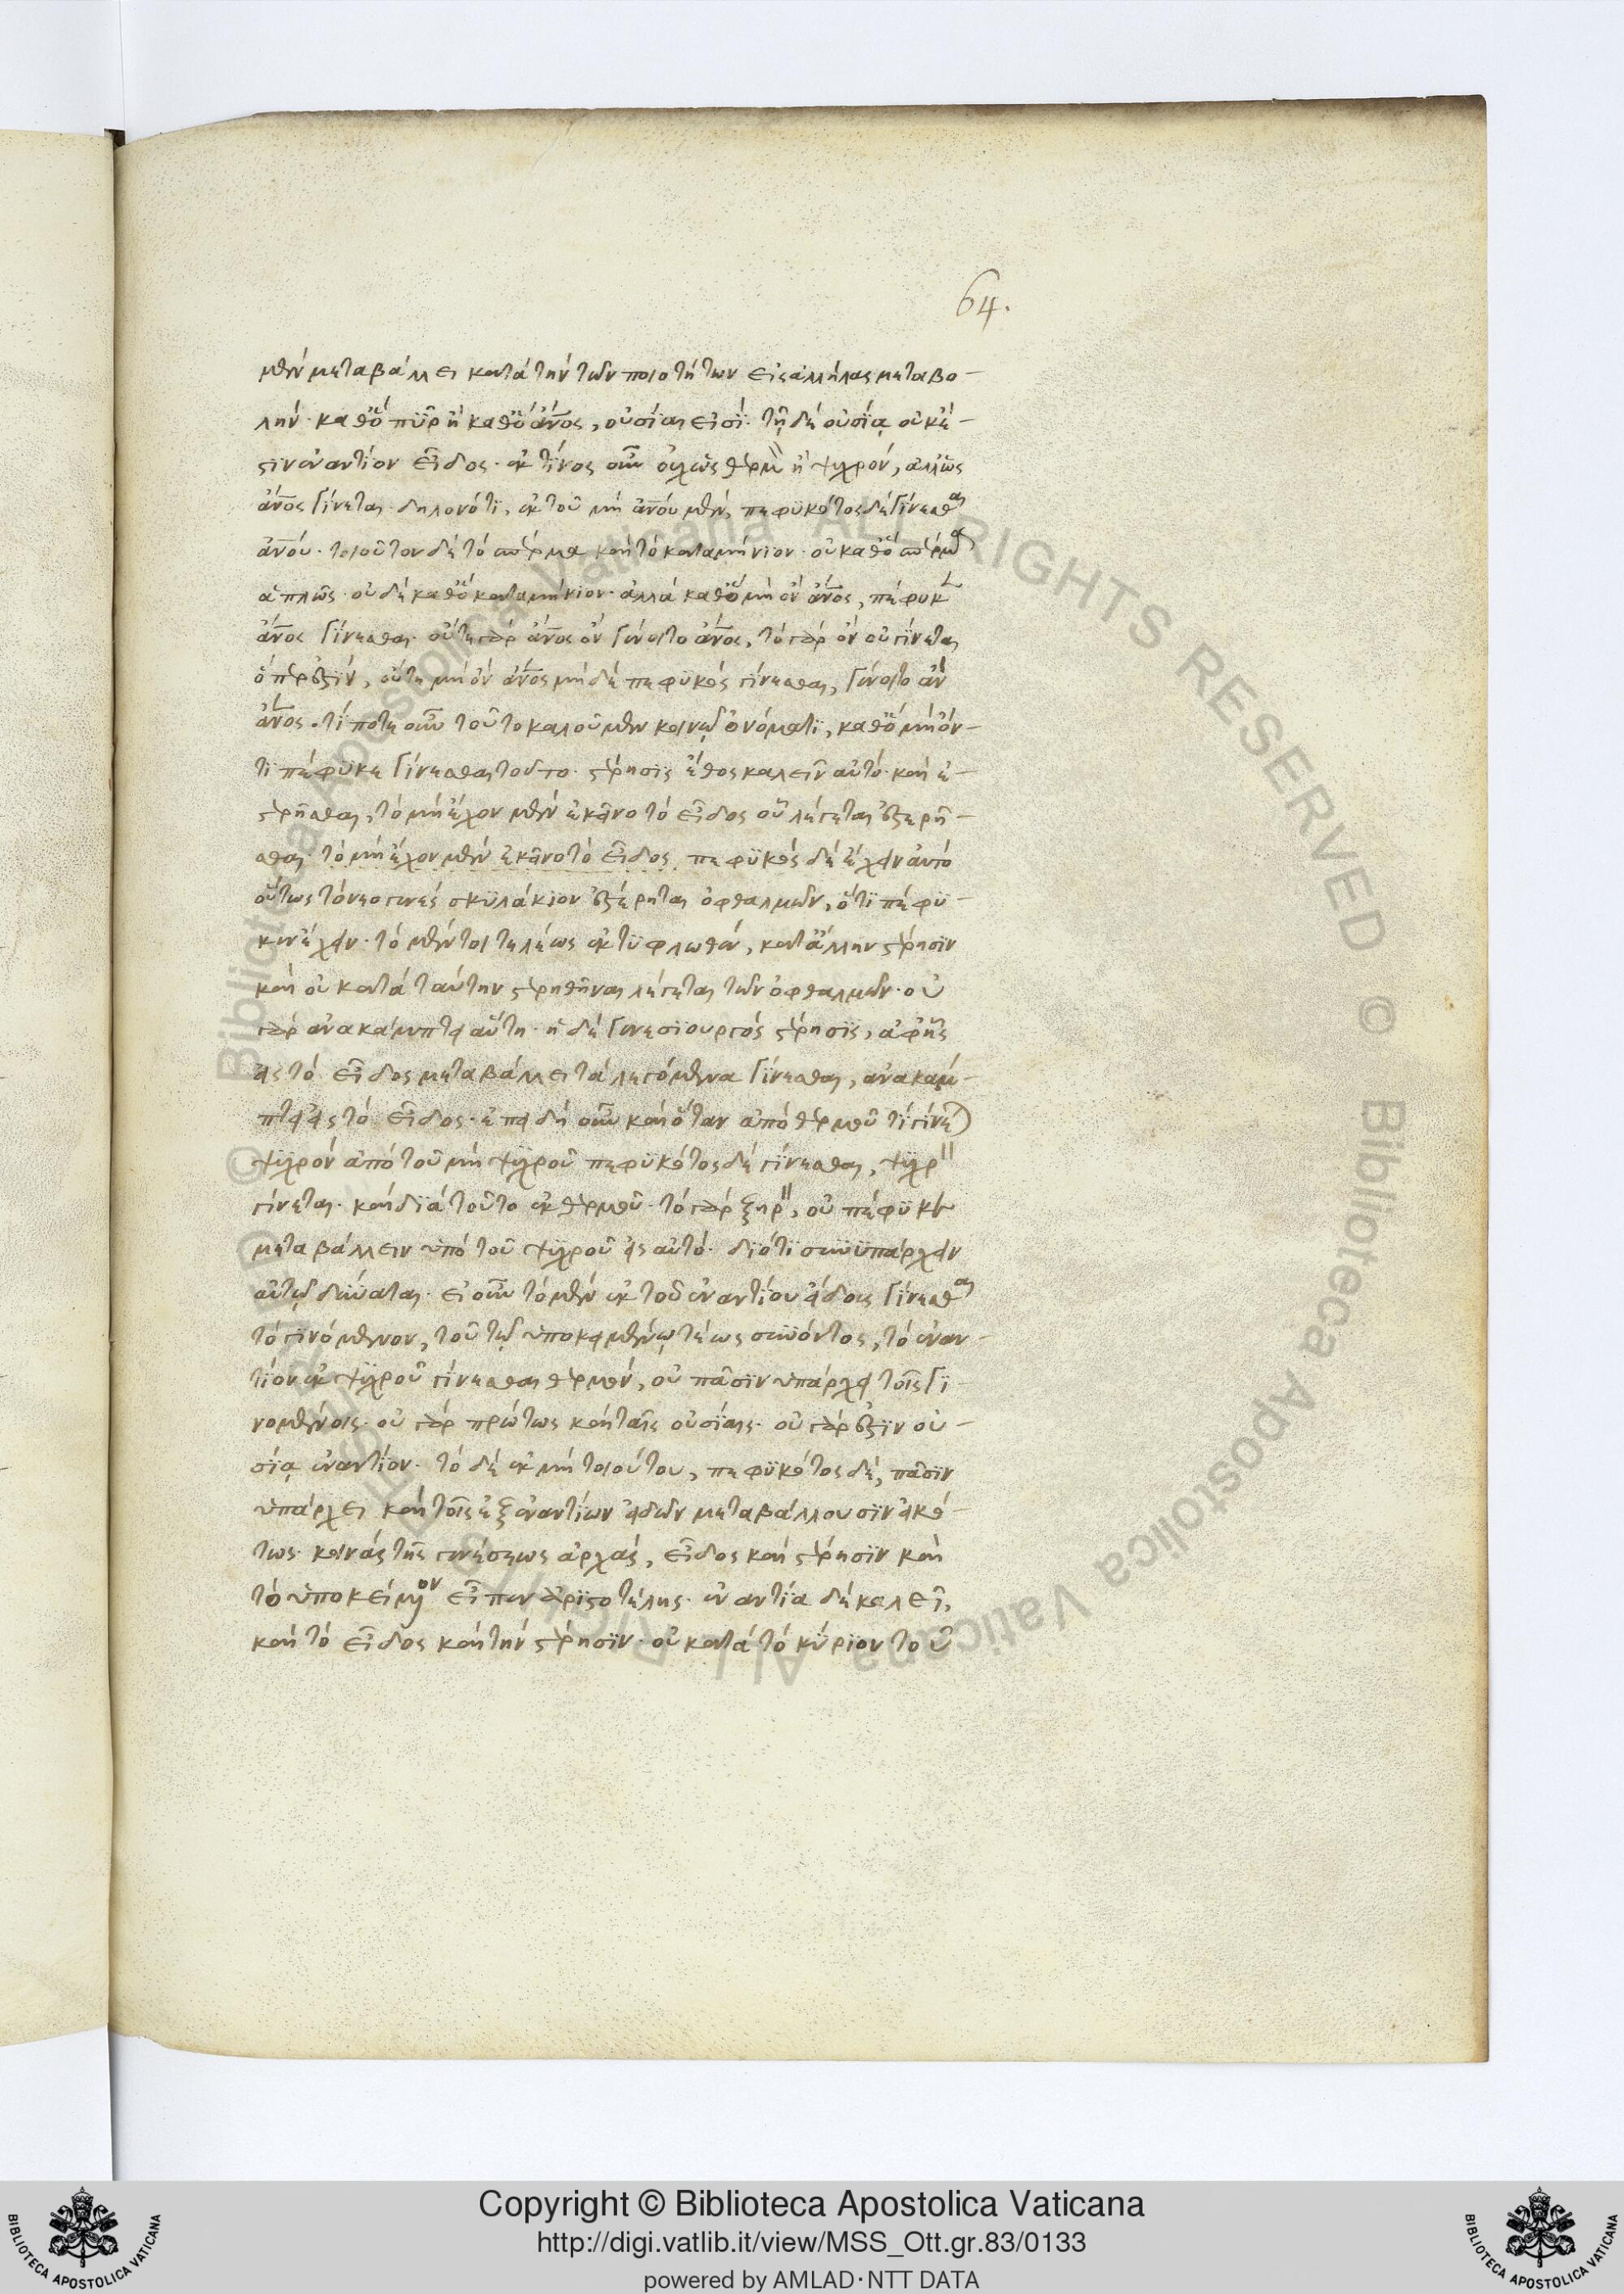 64.
μὲν μεταβάλλει κατὰ τὴν τῶν ποιοτήτων εἰς ἀλλήλας μεταβο-
λήν· καθὸ πῦρ ἢ καθὸ ἄν̅ο̅ς, οὐσίαι εἰσΐ· τῇ δὲ οὐσΐᾳ οὐκ ἔ-
στιν ἐναντίον εἶδος· ἐκ τίνος οὖν θερμὸν ἢ ψυχρόν, ἀλλ' ὡς
ἄν̅ο̅ς γίνεται· δηλονότι, ἐκ τοῦ μὴ ἀν̅ο̅υ μὲν, πεφυκότος δὲ γίνεσθαι
ἀν̅ο̅υ· τοιοῦτον δὲ τὸ σπέρμα καὶ τὸ καταμήνιον· οὐ καθὸ σπέρμα
ἁπλῶς· οὐδὲ καθὸ καταμήνιον· ἀλλὰ καθὸ μὴ ὂν ἄν̅ο̅ς, πέφυκεν
ἄν̅ο̅ς γίνεσθαι· οὔτε γὰρ ἄν̅ο̅ς ὂν γένοιτο ἄν̅ο̅ς, τὸ γὰρ ὂν οὐ γίνεται
ὅπερ ἐστίν, οὔτε μὴ ὂν ἄν̅ο̅ς μὴ δὲ πεφυκὸς γίνεσθαι, γένοιτο ἂν
ἄν̅ο̅ς· τί ποτε οὖν τοῦτο καλοῦμεν κοινῷ ὀνόματι, καθὸ μὴ ὄν-
τι πέφυκε γίνεσθαι τοῦτο· στέρησις ἔθος καλεῖν αὐτό· καὶ ἐ-
στερῆσθαι, τὸ μὴ ἔχον μὲν ἐκεῖνο τὸ εἶδος οὗ λέγεται ἐστερῆ-
σθαι· τὸ μὴ ἔχον μὲν ἐκεῖνο τὸ εἶδος, πεφυκὸς δὲ ἔχειν αὐτό
οὕτως τὸ νεογενὲς σκυλάκιον ἐστέρηται ὀφθαλμῶν, ὅτι πέφυ-
κεν ἔχειν· τὸ μέντοι τελέως ἐκτυφλωθὲν, κατ' ἄλλην στέρησιν
καὶ οὐ κατὰ ταύτην στερηθῆναι λέγεται τῶν ὀφθαλμῶν· οὐ
γὰρ ἀνακάμπτει αὕτη· ἡ δὲ γενεσιουργὸς στέρησις, ἀφ' ἧς
εἰς τὸ εἶδος μεταβάλλει τὰ λεγόμενα γίνεσθαι, ἀνακάμ-
πτει εἰς τὸ εἶδος· ἐπειδὴ οὖν καὶ ὅταν ἀπὸ θερμοῦ τί γίνηται
ψυχρὸν ἀπὸ τοῦ μὴ ψυχροῦ πεφυκότος δὲ γίνεσθαι, ψυχρὸν
γίνεται· καὶ διὰ τοῦτο ἐκ θερμοῦ· τὸ γὰρ ξηρὸν, οὐ πέφυκεν
μεταβάλλειν ὑπὸ τοῦ ψυχροῦ εἰς αὐτό· διότι συνυπάρχειν
αὐτῷ δύναται· εἰ οὖν τὸ μὲν ἐκ τοῦ ἐναντίου εἴδους γίνεσθαι
τὸ γινόμενον, τούτῳ ὑποκειμένῳ τέως συνόντος, τὸ ἐναν-
τίον ἐκ ψυχροῦ γίνεσθαι θερμόν, οὐ πᾶσιν ὑπάρχει τοῖς γι-
νομένοις· οὐ γὰρ πρώτως καὶ ταῖς οὐσίαις· οὐ γάρ ἐστιν οὐ-
σίᾳ ἐναντίον· τὸ δὲ ἐκ μὴ τοιούτου, πεφυκότος δὲ, πᾶσιν
ὑπάρχει καὶ τοῖς ἐξ ἐναντίων εἰδῶν μεταβάλλουσιν εἰκό-
τως κοινὰς τῆς γενέσεως ἀρχὰς, εἶδος καὶ στέρησιν καὶ
τὸ ὑποκείμενον εἶπεν ἀριστοτέλης· ἐναντία δὲ καλεῖ,
καὶ τὸ εἶδος καὶ τὴν στέρησιν· οὐ κατὰ τὸ κύριον τοῦ
Copyright © Biblioteca Apostolica Vaticana
http://digi.vatlib.it/view/MSS_Ott.gr.83/0133
powered by AMLAD·NTT DATA
BIBLIOTECA APOSTOLICA VATICANA
BIBLIOTECA APOSTOLICA VATICANA
© Biblioteca Apostolica Vaticana ALL RIGHTS RESERVED © Biblioteca Apostolica Vaticana ALL RIGHTS RESERVED